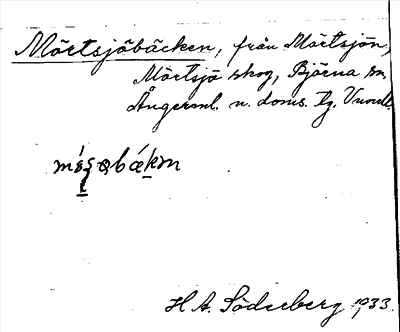 Mörtsjöbäcken, från Mörtsjön,
Mörtsjö skog, Björna sn,
Ångerml. n. doms. tg.
H A. Söderberg 1933.